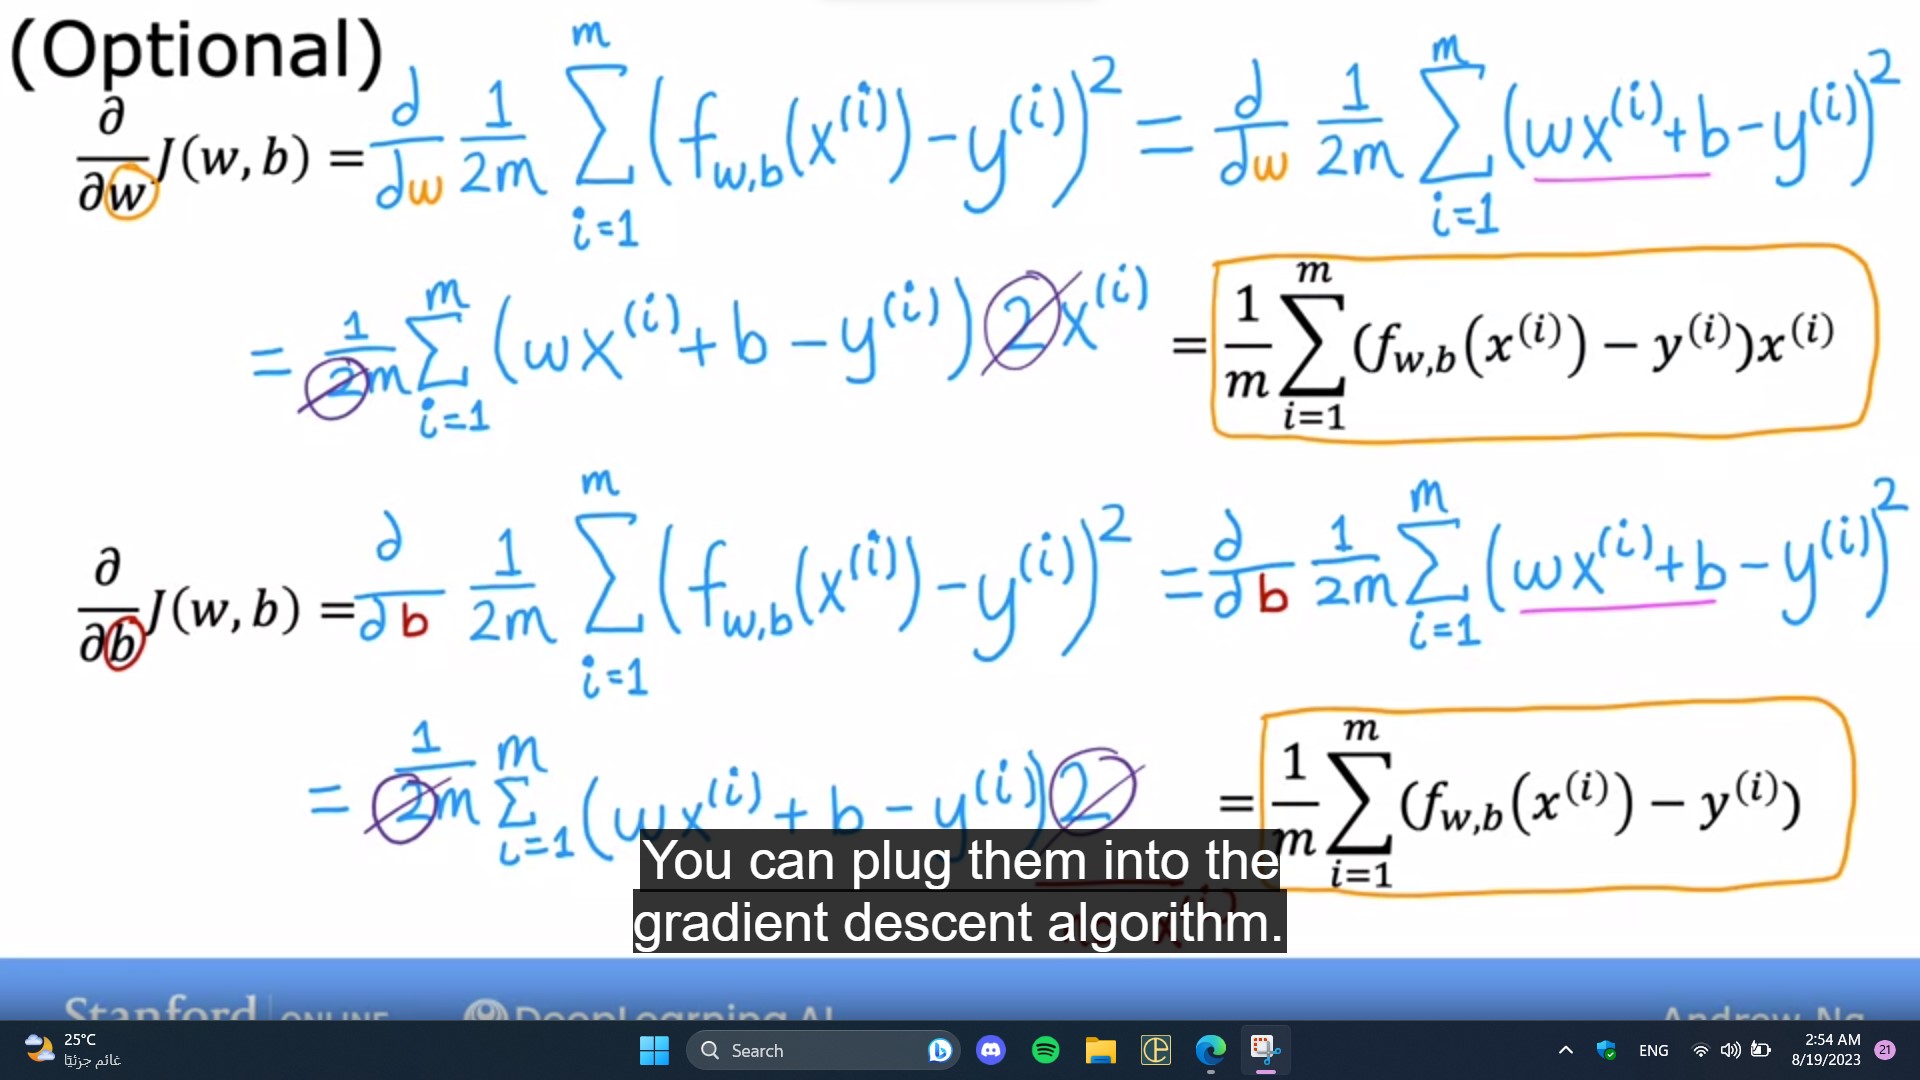 (Optional)
∂/∂w J(w, b) = d/dw 1/2m Σ_{i=1}^{m} (f_{w,b}(x^{(i)}) - y^{(i)})² = d/dw 1/2m Σ_{i=1}^{m} (wx^{(i)} + b - y^{(i)})²
= 1/2m Σ_{i=1}^{m} (wx^{(i)} + b - y^{(i)}) 2 x^{(i)} = 1/m Σ_{i=1}^{m} (f_{w,b}(x^{(i)}) − y^{(i)})x^{(i)}
∂/∂b J(w, b) = d/db 1/2m Σ_{i=1}^{m} (f_{w,b}(x^{(i)}) - y^{(i)})² = d/db 1/2m Σ_{i=1}^{m} (wx^{(i)} + b - y^{(i)})²
= 1/2m Σ_{i=1}^{m} (wx^{(i)} + b - y^{(i)}) 2 = 1/m Σ_{i=1}^{m} (f_{w,b}(x^{(i)}) − y^{(i)})
You can plug them into the
gradient descent algorithm.
Stanford ONLINE DeepLearning.AI Andrew Ng
25°C
غائم جزئيًا
Search
ENG
2:54 AM
8/19/2023
21